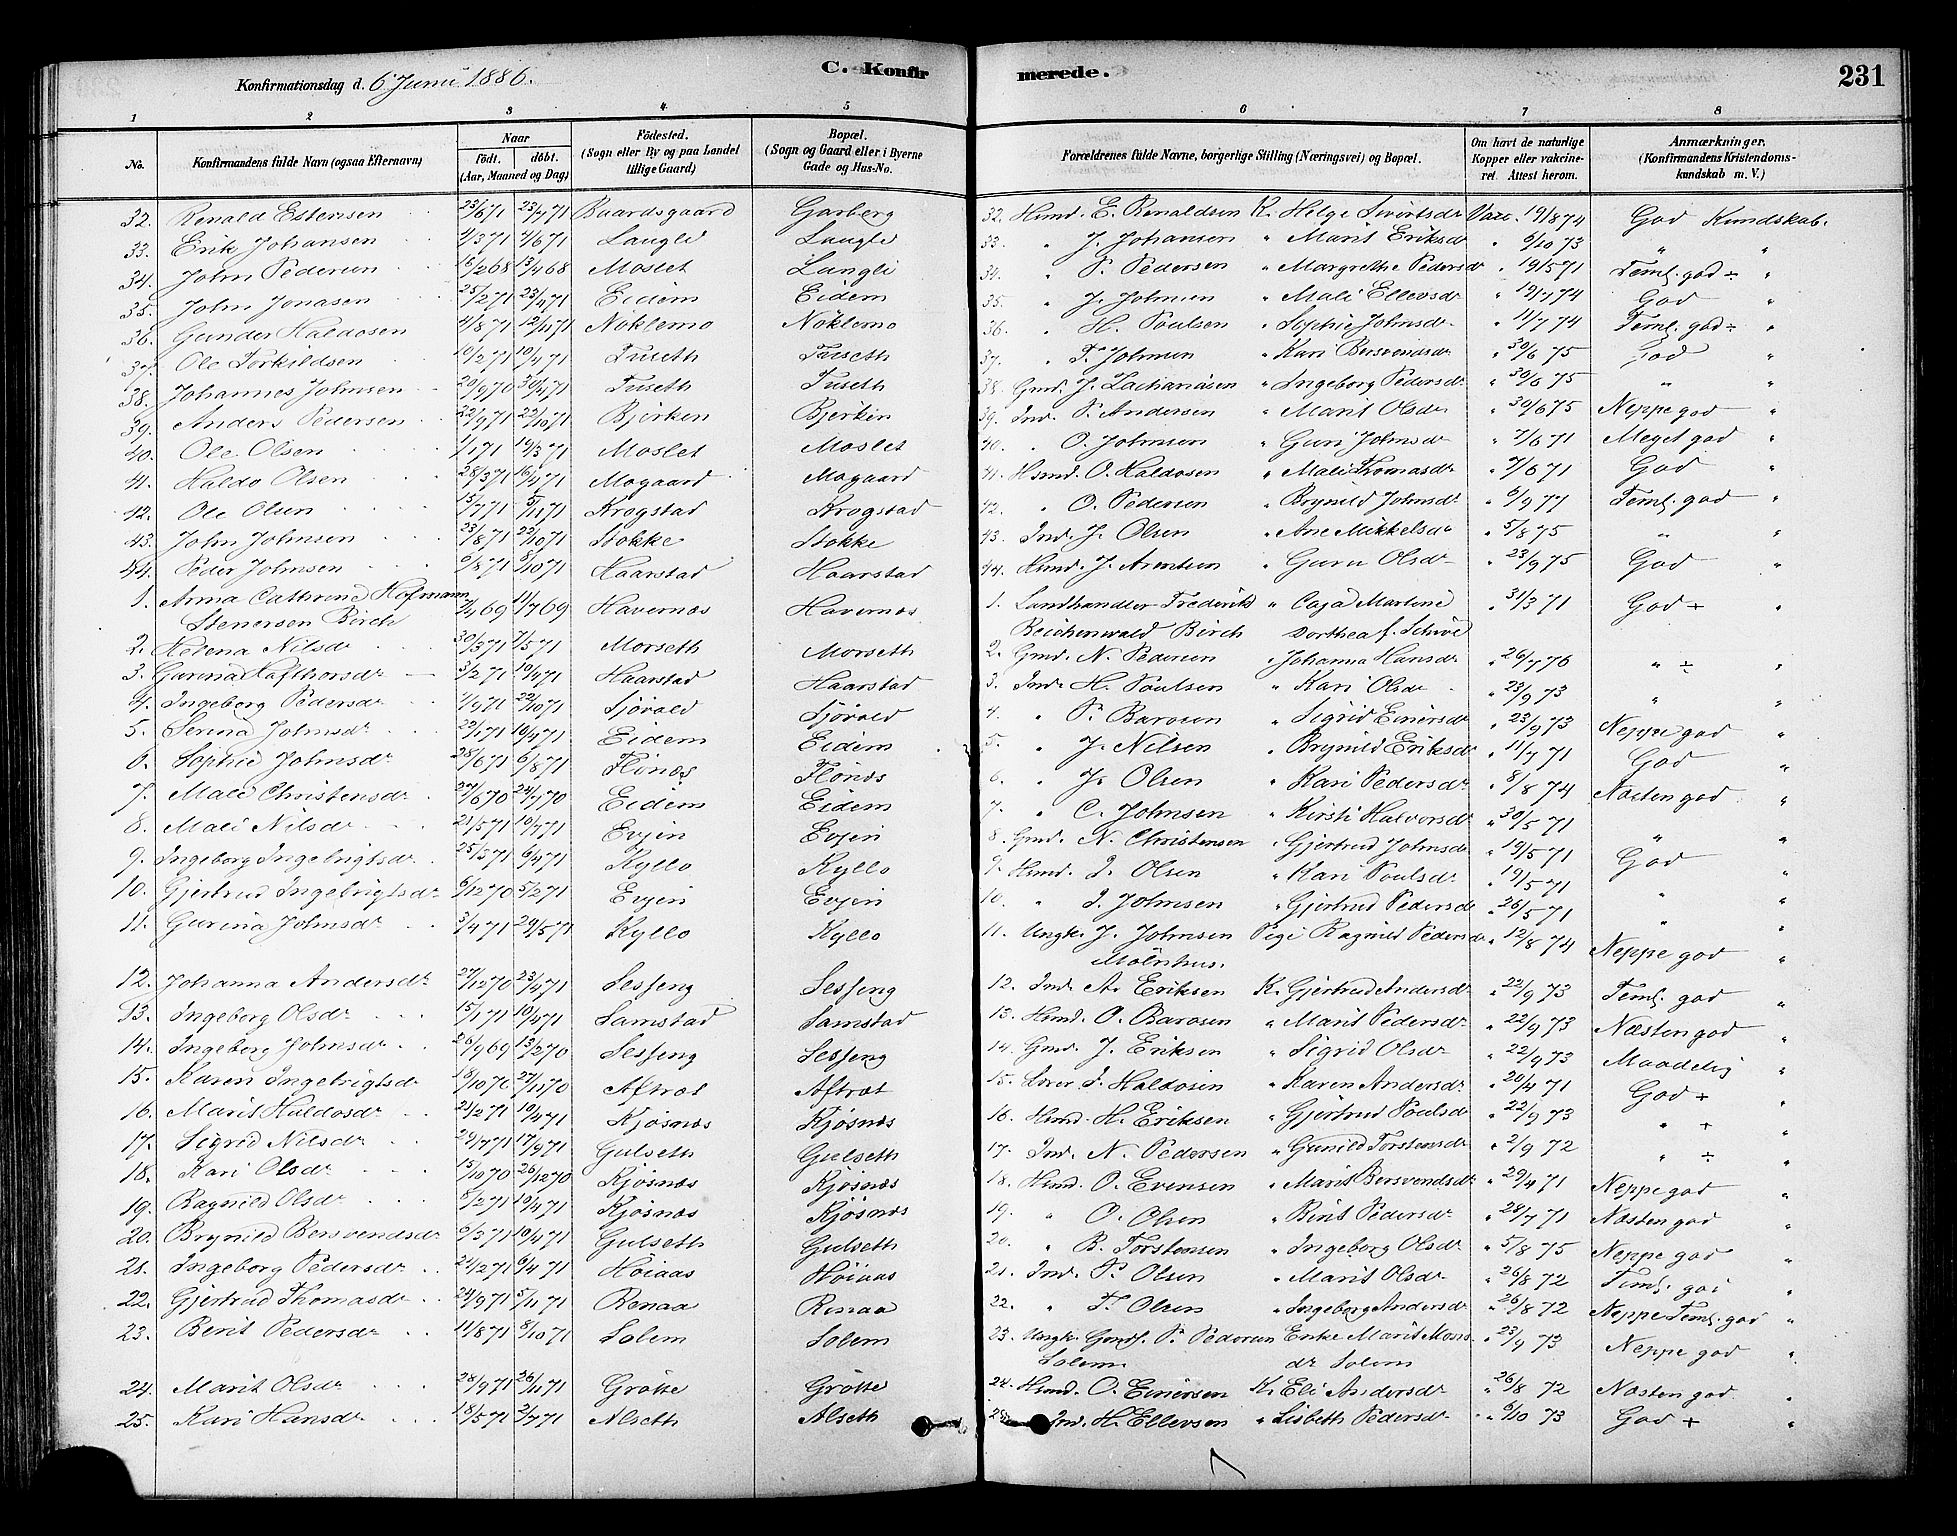 Konfirmationsdag d. 6 Juni 1886.
C. Konfirmerede.
231
1 2 3 4 5 6 7 8
No. Konfirmandens fulde Navn (ogsaa Efternavn) Naar født. døbt. (Aar, Maaned og Dag) Fødested. (Sogn eller By og paa Landet tillige Gaard) Bopæl. (Sogn og Gaard eller i Byerne Gade og Hus-No.) Forældrenes fulde Navne, borgerlige Stilling (Næringsvei) og Bopæl. Om havt de naturlige Kopper eller vakcineret. Attest herom. Anmærkninger. (Konfirmandens Kristendomskundskab m. V.)
32. Renald Estensen 23/6 71 23/7 71 Baardsgaard Garberg 32. Husmd. E. Renaldsen K. Helge Sivertsdr Vacc. 19/8 74 God Kundskab.
33. Erik Johansen 2/3 71 4/6 71 Langli Langli 33. " J. Johansen " Marit Eriksdr " 6/10 73 " "
34. John Pedersen 16/2 68 13/4 68 Moslet Langli 34. " P. Pedersen " Margrethe Pedersdr " 19/5 71 Teml. god ÷ "
35. John Jonasen 25/2 71 23/4 71 Eidem Eidem 35. " J. Johnsen " Mali Ellevsdr " 12/7 74 God "
36. Gunder Haldosen 4/8 71 12/11 71 Nøklemo Nøklemo 36. " H. Poulsen " Sophie Johnsdr " 11/7 74 Teml. god ÷ "
37. Ole Torkildsen 10/2 71 10/4 71 Tuseth Tuseth 37. " T. Johnsen " Kari Bersvendsdr " 30/6 75 God "
38. Johannes Johnsen 20/9 70 30/4 71 Tuseth Tuseth 38. Gmd. J. Zachariasen " Ingeborg Pedersdr " 30/6 75 " "
39. Anders Pedersen 22/9 71 22/10 71 Bjerken Bjerken 39. Ind. P. Andersen " Marit Olsdr " 30/6 75 Neppe god "
40. Ole Olsen 1/1 71 19/3 71 Moslet Moslet 40. " O. Johnsen " Guri Johnsdr " 7/6 71 Meget god "
41. Haldo Olsen 28/3 71 16/4 71 Mogaard Mogaard 41. Husmd. O. Haldosen " Mali Thomasdr " 7/6 71 God "
42. Ole Olsen 15/7 71 5/11 71 Krogstad Krogstad 42. " O. Pedersen " Brynild Johnsdr " 6/9 77 Teml. god "
43. John Johnsen 23/8 71 22/10 71 Stokke Stokke 43. Ind. J. Olsen " Ane Mikkelsdr " 5/8 75 " "
44. Peder Johnsen 6/8 71 8/10 71 Haarstad Haarstad 44. Husmd. J. Arentsen " Guru Olsdr " 23/9 75 God "
1. Anna Cathrine Hofmann Stenersen Birch 7/4 69 11/7 69 Havernæs Havernæs 1. Landhandler Frederik Reichenwald Birch " Caja Martine Dorthea f. Schive " 31/3 71 God + "
2. Helena Nilsdr 30/3 71 7/5 71 Morseth Morseth 2. Gmd. N. Pedersen " Johanna Hansdr " 26/7 76 " ÷ "
3. Gurina Hafthorsdr 3/2 71 10/4 71 Haarstad Haarstad 3. Ind. H. Poulsen " Kari Olsdr " 23/9 73 " "
4. Ingeborg Pedersdr 1/9 71 22/10 71 Sjøvold Sjøvold 4. " P. Barosen " Sigrid Einersdr " 23/9 73 Neppe god "
5. Serina Johnsdr 22/1 71 10/4 71 Eidem Eidem 5. " J. Nilsen " Brynild Eriksdr " 11/7 71 God "
6. Sophie Johnsdr 28/6 71 6/8 71 Flønæs Flønæs 6. " J. Olsen " Kari Pedersdr " 8/8 74 Næsten god "
7. Mali Christensdr 27/6 70 24/7 70 Eidem Eidem 7. " C. Johnsen " Kirsti Halvorsdr " 30/5 71 " "
8. Mali Nilsdr 21/5 71 10/7 71 Evjen Evjen 8. Gmd. N. Christensen " Gjertrud Johnsdr " 19/5 71 God "
9. Ingeborg Ingebrigtsdr 25/3 71 6/4 71 Kyllo Kyllo 9. Husmd. I. Olsen " Kari Poulsdr " 19/5 71 " "
10. Gjertrud Ingebrigtsdr 6/12 70 5/2 71 Evjen Evjen 10. " I. Johnsen " Gjertrud Pedersdr " 26/5 71 " "
11. Gurina Johnsdr 3/4 71 29/5 71 Kyllo Kyllo 11. Ungk. J. Johnsen Mølnhus. Pige Ragnild Pedersdr " 12/8 74 Neppe god "
12. Johanna Andersdr 27/12 70 23/4 71 Sesseng Sesseng 12. Ind. A. Eriksen K. Gjertrud Andersdr " 22/9 73 Teml. god "
13. Ingeborg Olsdr 15/1 71 10/4 71 Samstad Samstad 13. Husmd. O. Barosen " Marit Pedersdr " 22/9 73 Næsten god "
14. Ingeborg Johnsdr 26/9 69 13/2 70 Sesseng Sesseng 14. Gmd. J. Eriksen " Sigrid Olsdr " 22/9 73 Maadelig "
15. Karen Ingebrigtsdr 18/10 70 27/11 70 Aftræt Aftræt 15. Lærer I. Haldosen " Karen Andersdr " 20/4 71 God + "
16. Marit Haldosdr 21/2 71 10/4 71 Kjøsnæs Kjøsnæs 16. Husmd. H. Eriksen " Gjertrud Poulsdr " 22/9 73 " + "
17. Sigrid Nilsdr 29/7 71 17/9 71 Gulseth Gulseth 17. Ind. N. Pedersen " Gunild Torstensdr " 2/9 72 " ÷ "
18. Kari Olsdr 15/10 70 26/12 70 Kjøsnæs Kjøsnæs 18. Husmd. O. Evensen " Marit Bersvendsdr " 29/4 71 Neppe god "
19. Ragnild Olsdr 8/2 71 10/4 71 Kjøsnæs Kjøsnæs 19. " O. Olsen " Berit Pedersdr " 28/7 71 Næsten god "
20. Brynild Bersvendsdr 6/3 71 10/4 71 Gulseth Gulseth 20. " B. Torstensen " Ingeborg Olsdr " 5/8 75 Neppe god "
21. Ingeborg Pedersdr 24/2 71 6/4 71 Høiaas Høiaas 21. Ind. P. Olsen " Marit Olsdr " 26/8 72 Teml. god "
22. Gjertrud Thomasdr 24/9 71 5/11 71 Renaa Renaa 22. " T. Olsen " Ingeborg Andersdr " 26/8 72 Neppe Teml. god "
23. Berit Pedersdr 11/8 71 8/10 71 Solem Solem 23. Ungk. Gmds. P. Pedersen Solem. Enke Marit Monsdr Solem " 23/9 73 Neppe god "
24. Marit Olsdr 28/9 71 26/11 71 Grøtte Grøtte 24. Husmd. O. Einersen K. Eli Andersdr " 26/8 72 Næsten god "
25. Kari Hansdr 18/5 71 2/7 71 Alseth Alseth 25. Ind. H. Ellevsen " Lisbeth Pedersdr " 6/10 73 God + "